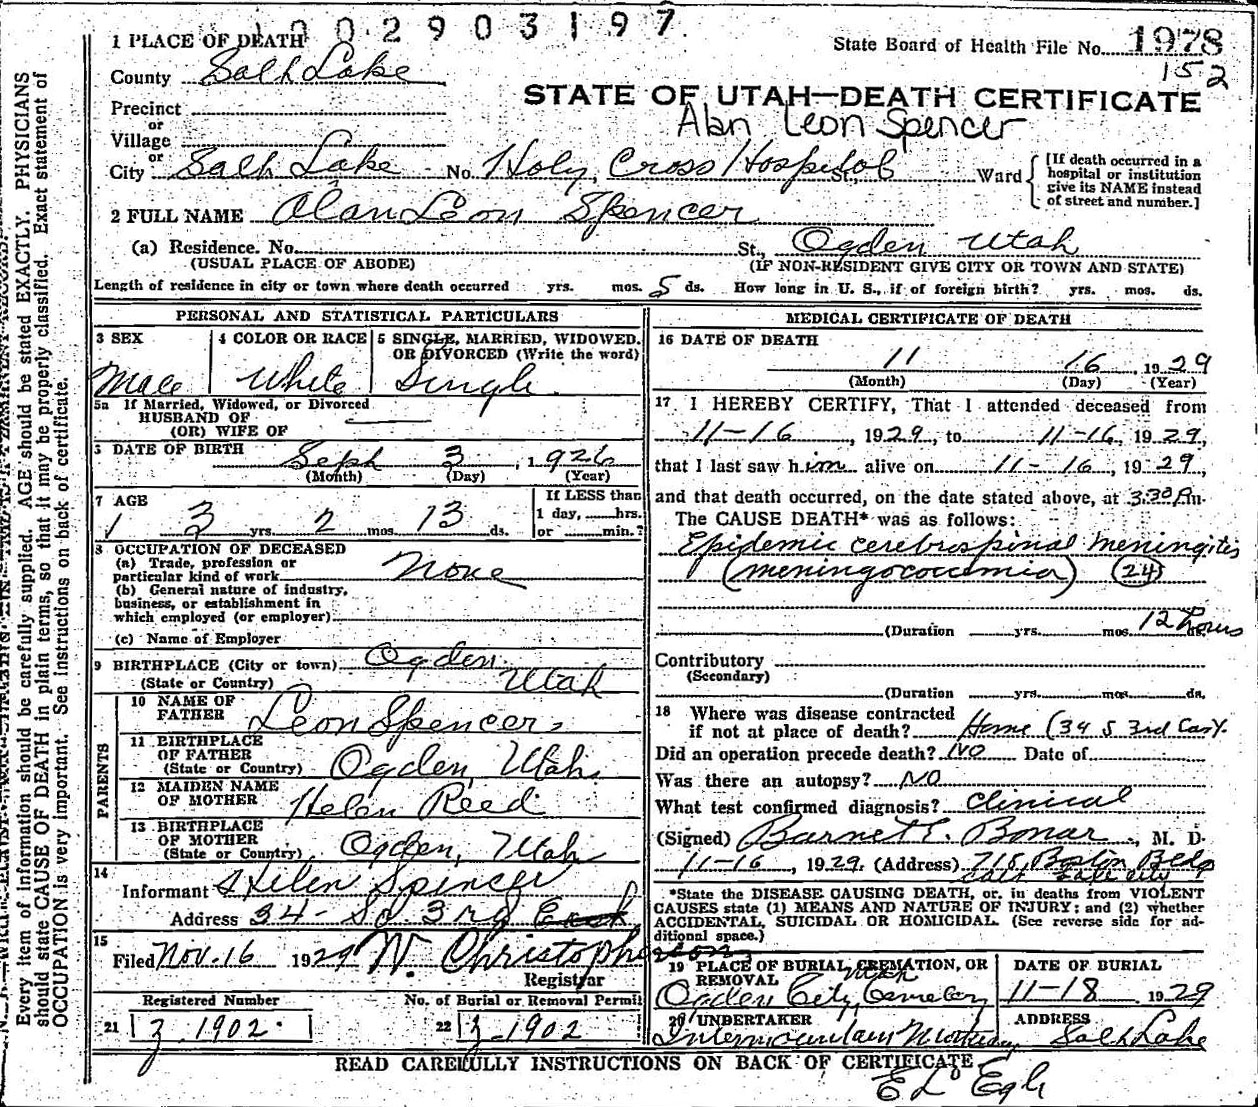 1 0 0 2 9 0 3 1 9 7
1 PLACE OF DEATH
State Board of Health File No. 1978
152
County Salt Lake
STATE OF UTAH—DEATH CERTIFICATE
Alan Leon Spencer
Precinct
or
Village
or
City Salt Lake No. Holy Cross Hospital St., Ward
[If death occurred in a
hospital or institution
give its NAME instead
of street and number.]
2 FULL NAME Alan Leon Spencer
(a) Residence. No. St., Ogden Utah
(USUAL PLACE OF ABODE) (IF NON-RESIDENT GIVE CITY OR TOWN AND STATE)
Length of residence in city or town where death occurred yrs. mos. 5 ds. How long in U. S., if of foreign birth? yrs. mos. ds.
PERSONAL AND STATISTICAL PARTICULARS
3 SEX
Male
4 COLOR OR RACE
White
5 SINGLE, MARRIED, WIDOWED,
OR DIVORCED (Write the word)
Single
5a If Married, Widowed, or Divorced
HUSBAND OF
(OR) WIFE OF
DATE OF BIRTH Sept 3, 1926
(Month) (Day) (Year)
7 AGE
3 yrs. 2 mos. 13 ds.
If LESS than
1 day, hrs.
or min.?
8 OCCUPATION OF DECEASED
(a) Trade, profession or
particular kind of work None
(b) General nature of industry,
business, or establishment in
which employed (or employer)
(c) Name of Employer
9 BIRTHPLACE (City or town) Ogden
(State or Country) Utah
PARENTS
10 NAME OF
FATHER Leon Spencer
11 BIRTHPLACE
OF FATHER
(State or Country) Ogden, Utah
12 MAIDEN NAME
OF MOTHER Helen Reed
13 BIRTHPLACE
OF MOTHER
(State or Country) Ogden, Utah
14
Informant Helen Spencer
Address 34 - So 3rd East
15
Filed Nov. 16 1929 W. Christopherson
Registrar
Registered Number No. of Burial or Removal Permit
21 z 1902 22 z 1902
MEDICAL CERTIFICATE OF DEATH
16 DATE OF DEATH
11 16, 1929
(Month) (Day) (Year)
17 I HEREBY CERTIFY, That I attended deceased from
11-16, 1929, to 11-16, 1929,
that I last saw him alive on 11-16, 1929,
and that death occurred, on the date stated above, at 3:30 m.
The CAUSE DEATH* was as follows:
Epidemic cerebrospinal meningites
(meningococcemia) (24)
12 hours
(Duration yrs. mos. ds.
Contributory
(Secondary)
(Duration yrs. mos. ds.
18 Where was disease contracted
if not at place of death? Home (34 S 3rd East).
Did an operation precede death? NO Date of
Was there an autopsy? NO
What test confirmed diagnosis? clinical
(Signed) Barnet E. Bonar, M. D.
11-16, 1929. (Address) 718 Boston Bldg
Salt Lake City
*State the DISEASE CAUSING DEATH, or, in deaths from VIOLENT
CAUSES state (1) MEANS AND NATURE OF INJURY; and (2) whether
ACCIDENTAL, SUICIDAL OR HOMICIDAL. (See reverse side for ad-
ditional space.)
19 PLACE OF BURIAL, CREMATION, OR
REMOVAL Utah
Ogden City Cemetery
DATE OF BURIAL
11-18 1929
20 UNDERTAKER
Intermountain Mortuary
ADDRESS
Salt Lake
READ CAREFULLY INSTRUCTIONS ON BACK OF CERTIFICATE
Every item of information should be carefully supplied. AGE should be stated EXACTLY. PHYSICIANS
should state CAUSE OF DEATH in plain terms, so that it may be properly classified. Exact statement of
OCCUPATION is very important. See instructions on back of certificate.